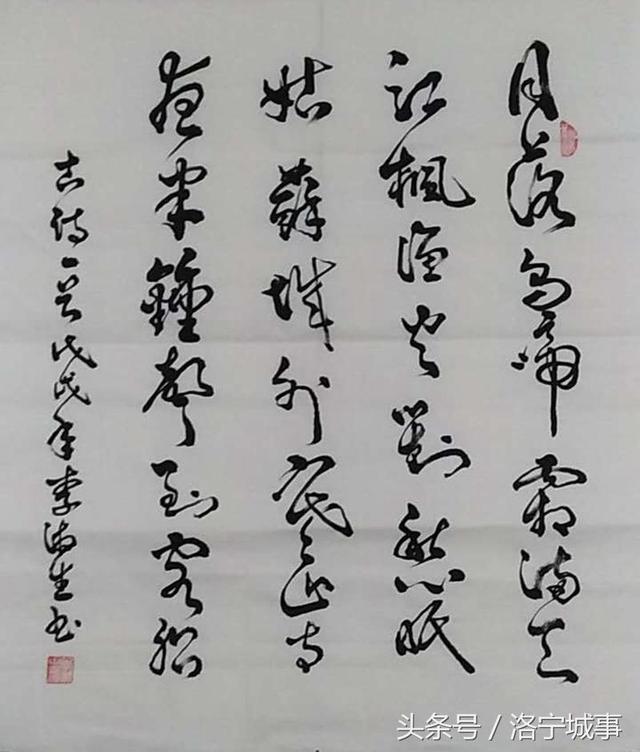 月落烏啼霜滿天
江楓漁火對愁眠
姑蘇城外寒山寺
夜半鐘聲到客船
古诗一首戊戌年李生书
头条号 / 洛宁城事